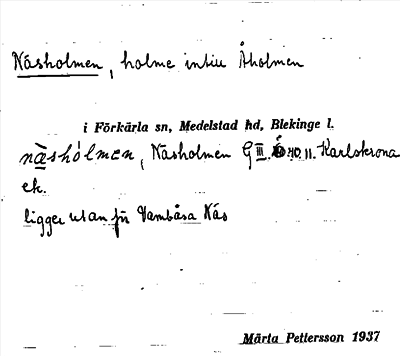 Näsholmen, holme intill Åholmen
i Förkärla sn, Medelstad hd, Blekinge l.
näshólmen, Näsholmen G III. Ö. 40. 11. Karlskrona
ek.
ligger utanför Vambåsa Näs
Märta Pettersson 1937